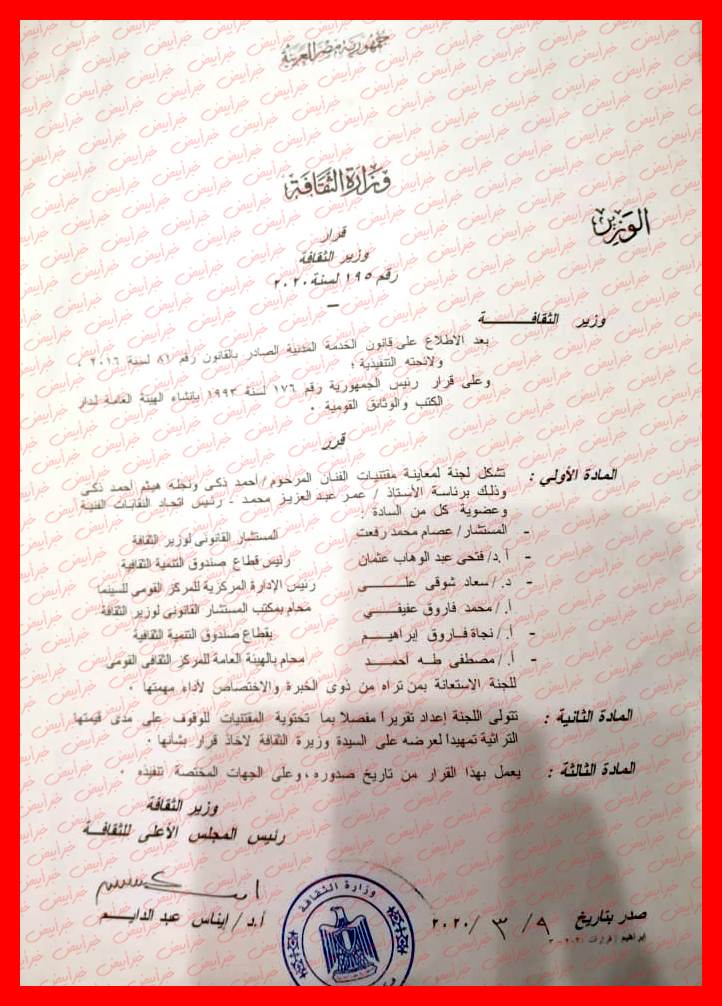 جمهورية مصر العربية
وزارة الثقافة
الوزير
قرار
وزير الثقافة
رقم ١٩٥ لسنة ٢٠٢٠
وزير الثقافــــــة
بعد الاطلاع على قانون الخدمة المدنية الصادر بالقانون رقم ٨١ لسنة ٢٠١٦ ،
ولائحته التنفيذية ؛
وعلى قرار رئيس الجمهورية رقم ١٧٦ لسنة ١٩٩٣ بإنشاء الهيئة العامة لدار
الكتب والوثائق القومية .
قرر
المادة الأولي : تشكل لجنة لمعاينة مقتنيات الفنان المرحوم/ أحمد ذكى ونجله هيثم أحمد ذكى
وذلك برئاسة الأستاذ / عمر عبد العزيز محمد - رئيس اتحاد النقابات الفنية
وعضوية كل من السادة :
- المستشار/ عصام محمد رفعت المستشار القانونى لوزير الثقافة
- أ.د/ فتحى عبد الوهاب عثمان رئيس قطاع صندوق التنمية الثقافية
- د./ سعاد شوقى علـــــى رئيس الإدارة المركزية للمركز القومى للسينما
أ./ محمد فاروق عفيفــــي محام بمكتب المستشار القانونى لوزير الثقافة
- أ./ نجاة فـاروق إبراهيــم بقطاع صندوق التنمية الثقافية
- أ./ مصطفى طـه أحمـــد محام بالهيئة العامة للمركز الثقافى القومى
للجنة الاستعانة بمن تراه من ذوى الخبرة والاختصاص لأداء مهمتها .
المادة الثانية : تتولى اللجنة إعداد تقريرا مفصلا بما تحتوية المقتنيات للوقوف على مدى قيمتها
التراثية تمهيدا لعرضه على السيدة وزيرة الثقافة لاخاذ قرار بشأنها .
المادة الثالثة : يعمل بهذا القرار من تاريخ صدوره ، وعلى الجهات المختصة تنفيذه .
وزير الثقافة
رئيس المجلس الأعلى للثقافــة
أ.د/ إيناس عبد الدايــم
وزارة الثقافة
صدر بتاريخ ٩ / ٣ / ٢٠٢٠
خبر أبيض